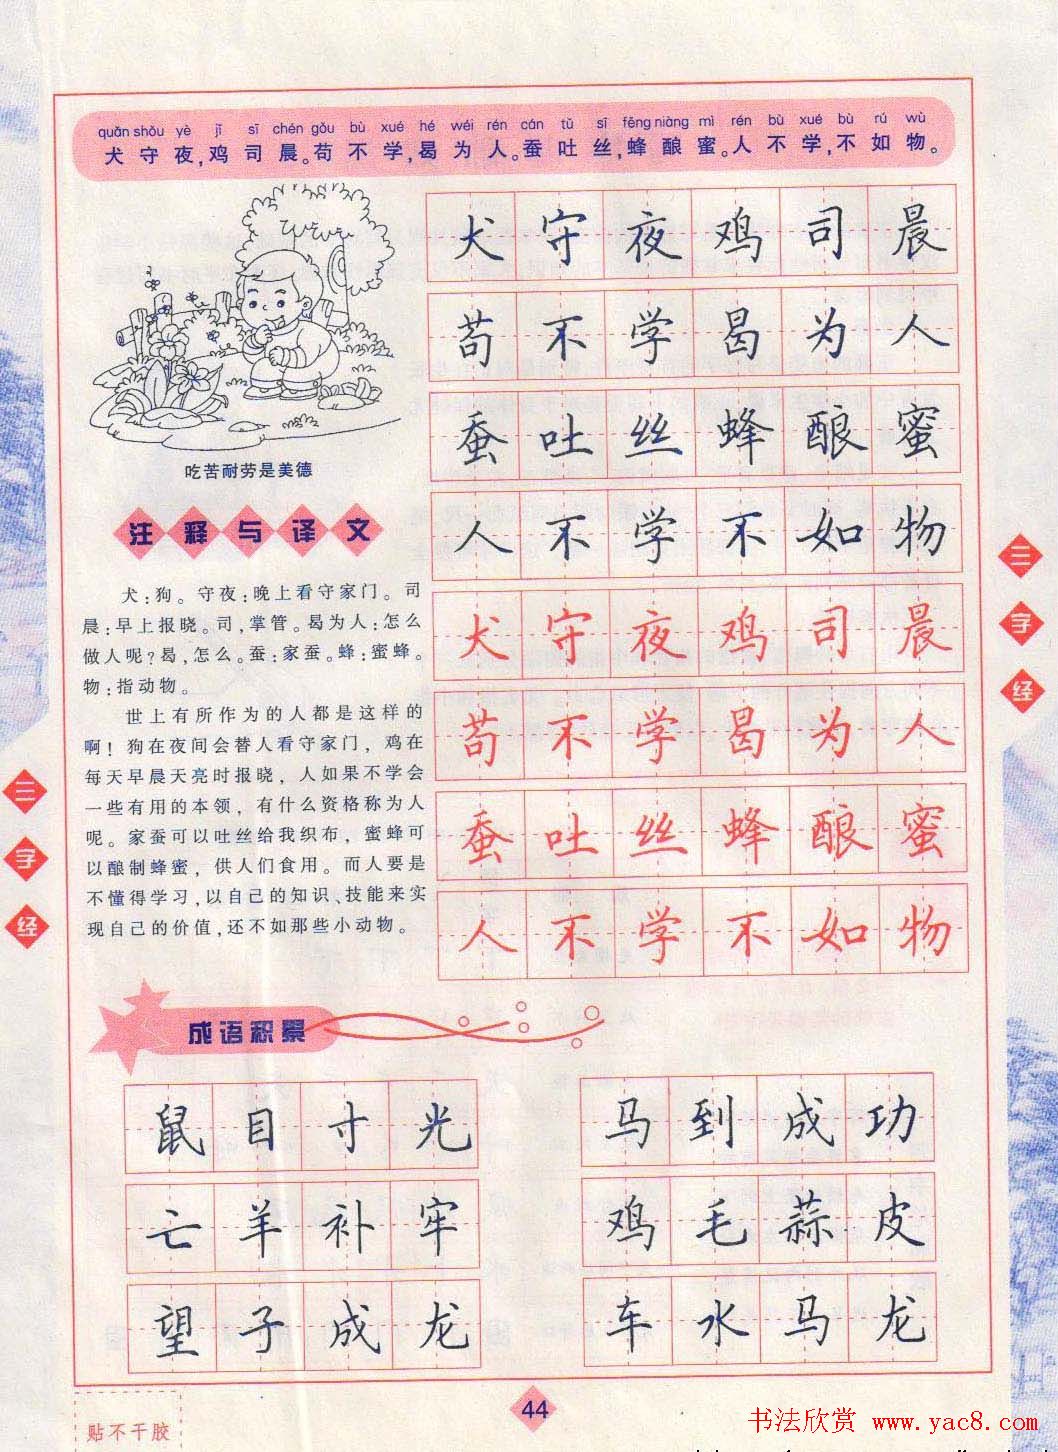 quǎn shǒu yè jī sī chén gǒu bù xué hé wéi rén cán tǔ sī fēng niàng mì rén bù xué bù rú wù
犬守夜,鸡司晨。苟不学,曷为人。蚕吐丝,蜂酿蜜。人不学,不如物。
犬守夜鸡司晨
苟不学曷为人
蚕吐丝蜂酿蜜
人不学不如物
犬守夜鸡司晨
苟不学曷为人
蚕吐丝蜂酿蜜
人不学不如物
吃苦耐劳是美德
注释与译文
犬:狗。守夜:晚上看守家门。司
晨:早上报晓。司,掌管。曷为人:怎么
做人呢?曷,怎么。蚕:家蚕。蜂:蜜蜂。
物:指动物。
世上有所作为的人都是这样的
啊!狗在夜间会替人看守家门,鸡在
每天早晨天亮时报晓,人如果不学会
一些有用的本领,有什么资格称为人
呢。家蚕可以吐丝给我织布,蜜蜂可
以酿制蜂蜜,供人们食用。而人要是
不懂得学习,以自己的知识、技能来实
现自己的价值,还不如那些小动物。
三字经
三字经
成语积累
鼠目寸光
马到成功
亡羊补牢
鸡毛蒜皮
望子成龙
车水马龙
44
贴不干胶
书法欣赏 www.yac8.com